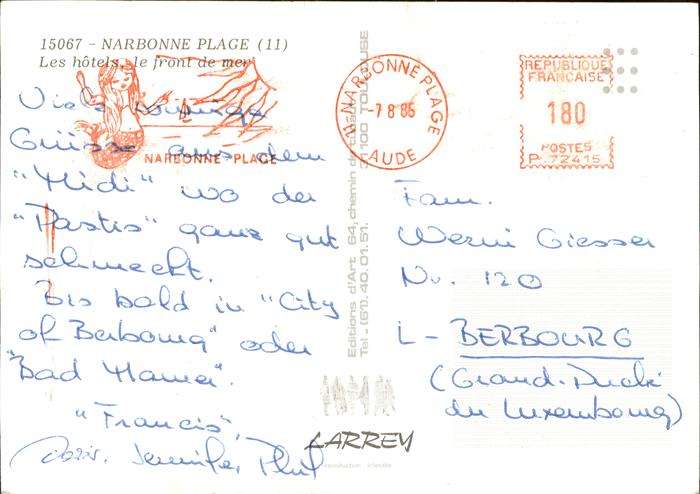 15067 – NARBONNE PLAGE (11)
Les hôtels, le front de mer
NARBONNE PLAGE
11 NARBONNE PLAGE
-7 8 85
AUDE
REPUBLIQUE
FRANÇAISE
180
POSTES
P. 72415
Viele
Grüsse aus dem
"Midi" wo der
"Pastis" ganz gut
schmeckt.
Bis bald in "City
of Berbourg" oder
"Bad Mamer".
"Francis",
Doris, Jennifer, Phil
Editions d'Art
64, chemin de
31100 TOULOUSE
Tél. (61). 40.01.51.
LARREY
reproduction interdite
Fam.
Werni Giesser
Nr. 120
L – BERBOURG
(Grand-Duché
du Luxembourg)